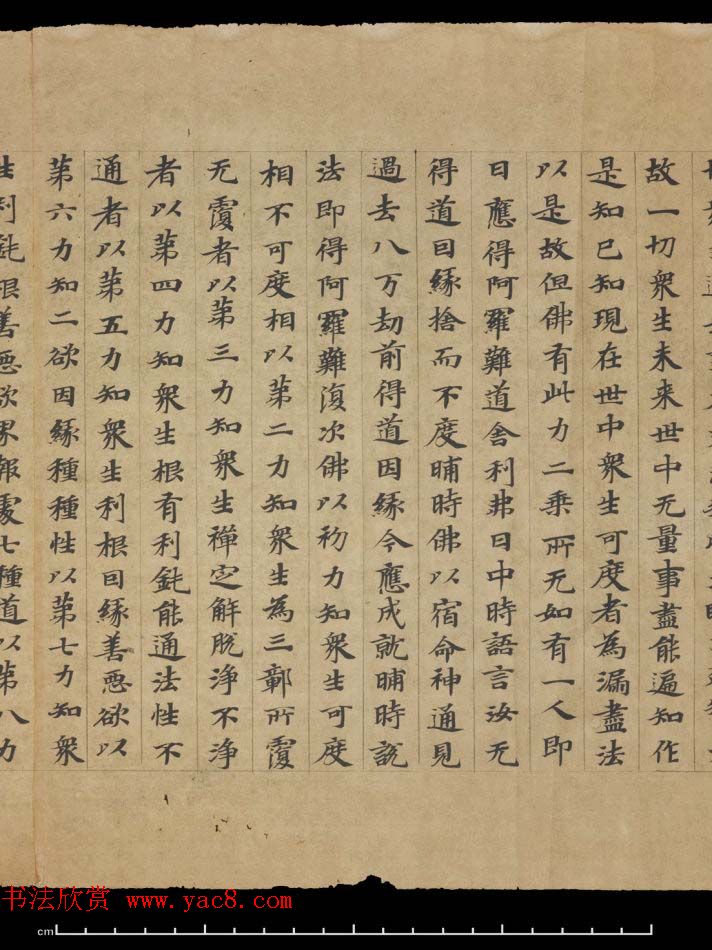 故一切衆生未来世中无量事盡能遍知作
是知已知現在世中衆生可度者為漏盡法
以是故但佛有此力二乗所无如有一人即
日應得阿羅難道舎利弗日中時語言汝无
得道因緣捨而不度晡時佛以宿命神通見
過去八万劫前得道因緣今應成就晡時說
法即得阿羅難復次佛以初力知衆生可度
相不可度相以苐二力知衆生為三鄣所覆
无覆者以苐三力知衆生禪定解脫淨不淨
者以苐四力知衆生根有利鈍能通法性不
通者以苐五力知衆生利根因緣善惡欲以
苐六力知二欲因緣種種性以苐七力知衆
生利鈍根善惡欲界報處七種道以苐八力
书法欣赏 www.yac8.com
cm